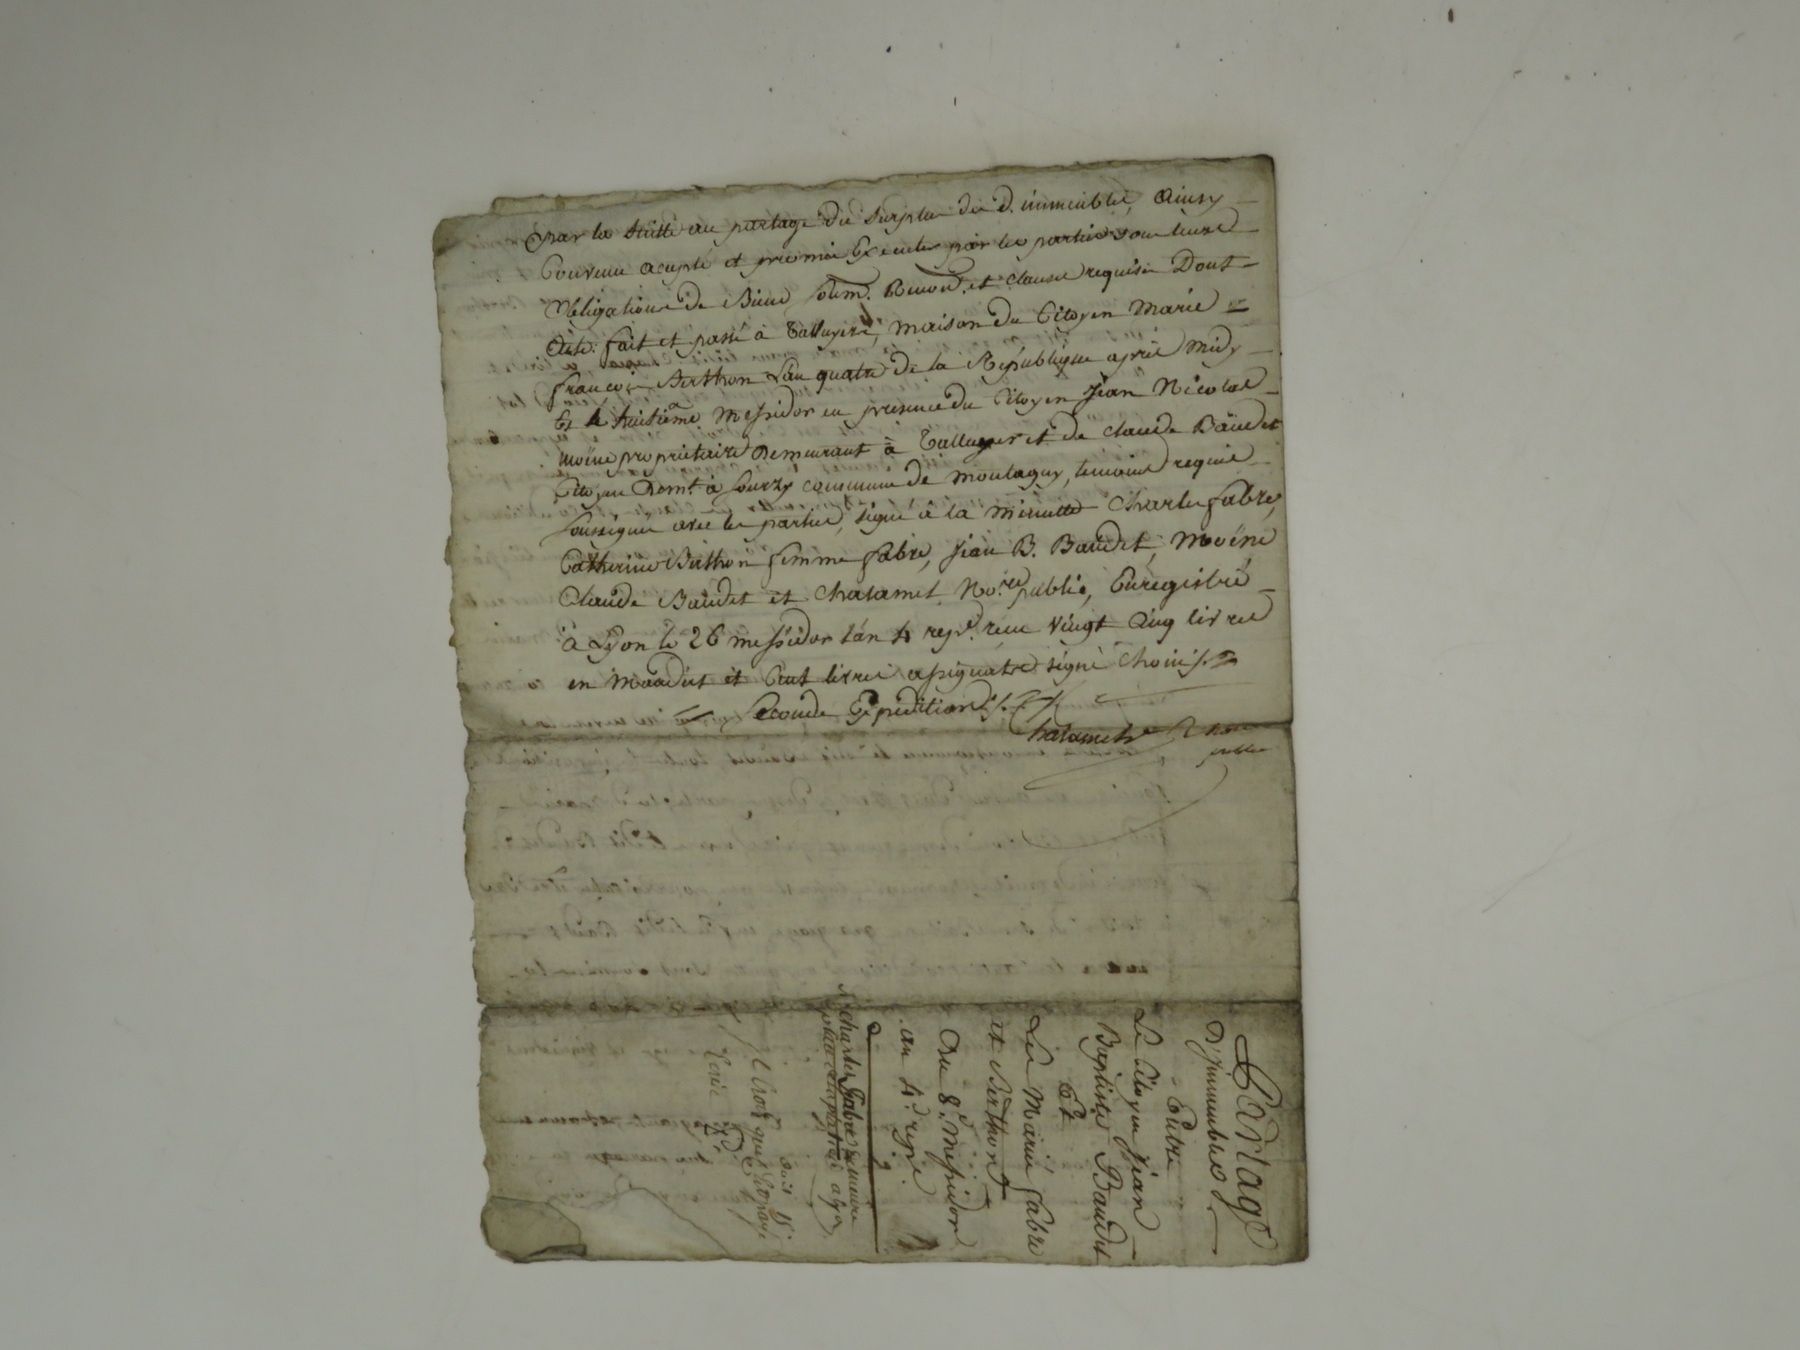 par la suitte au partage du surplus du d. immeuble, ainsy
Convenu acepté et promis Executer par les parties sous leurs
obligations de Biens soum. Renon. et clauses requises Dont
Acte. fait et passé à Talluyers, maison du Citoyen Marie
françois Berthon L'an quatre de la République après midy
Et le huitième Messidor en presence du Citoyen Jean Nicolas
Moïne propriétaire Demeurant à Talluyer et de Claude Baudet
Citoyen Demt. à Sourzy commune de Montagny, temoins requis
soussignes avec les parties, signé à la Minutte Charles fabre,
Catherine Berthon femme fabre, Jean B. Baudet, Moïne
Claude Baudet et Chatamet Nore. public, Enregistré
à Lyon le 26 messidor L'an 4 repe. reçu vingt Cinq livres
en Mandat et Cent livres assignats signé
Seconde Expedition
Chatamet
public
Partage
D'immeubles
Entre
Le Citoyen Jean
Baptiste Baudet
Et
Les Mariés fabre
et Berthon
Du 8e. Messidor
an 4e. repe.
Charles Fabre